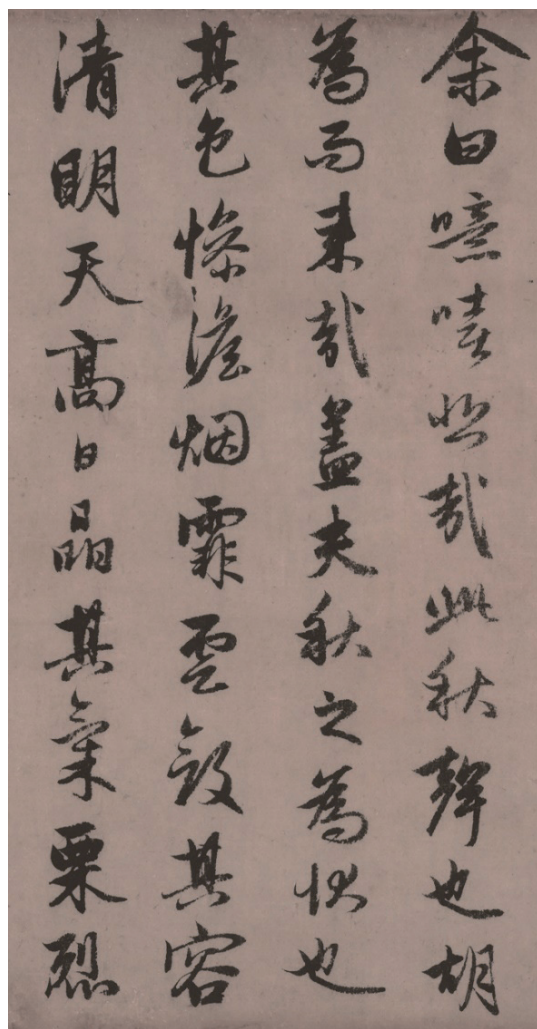 余曰噫嘻悲哉此秋聲也胡
為而来哉盖夫秋之為狀也
其色慘澹烟霏雲斂其容
清明天高日晶其氣栗烈